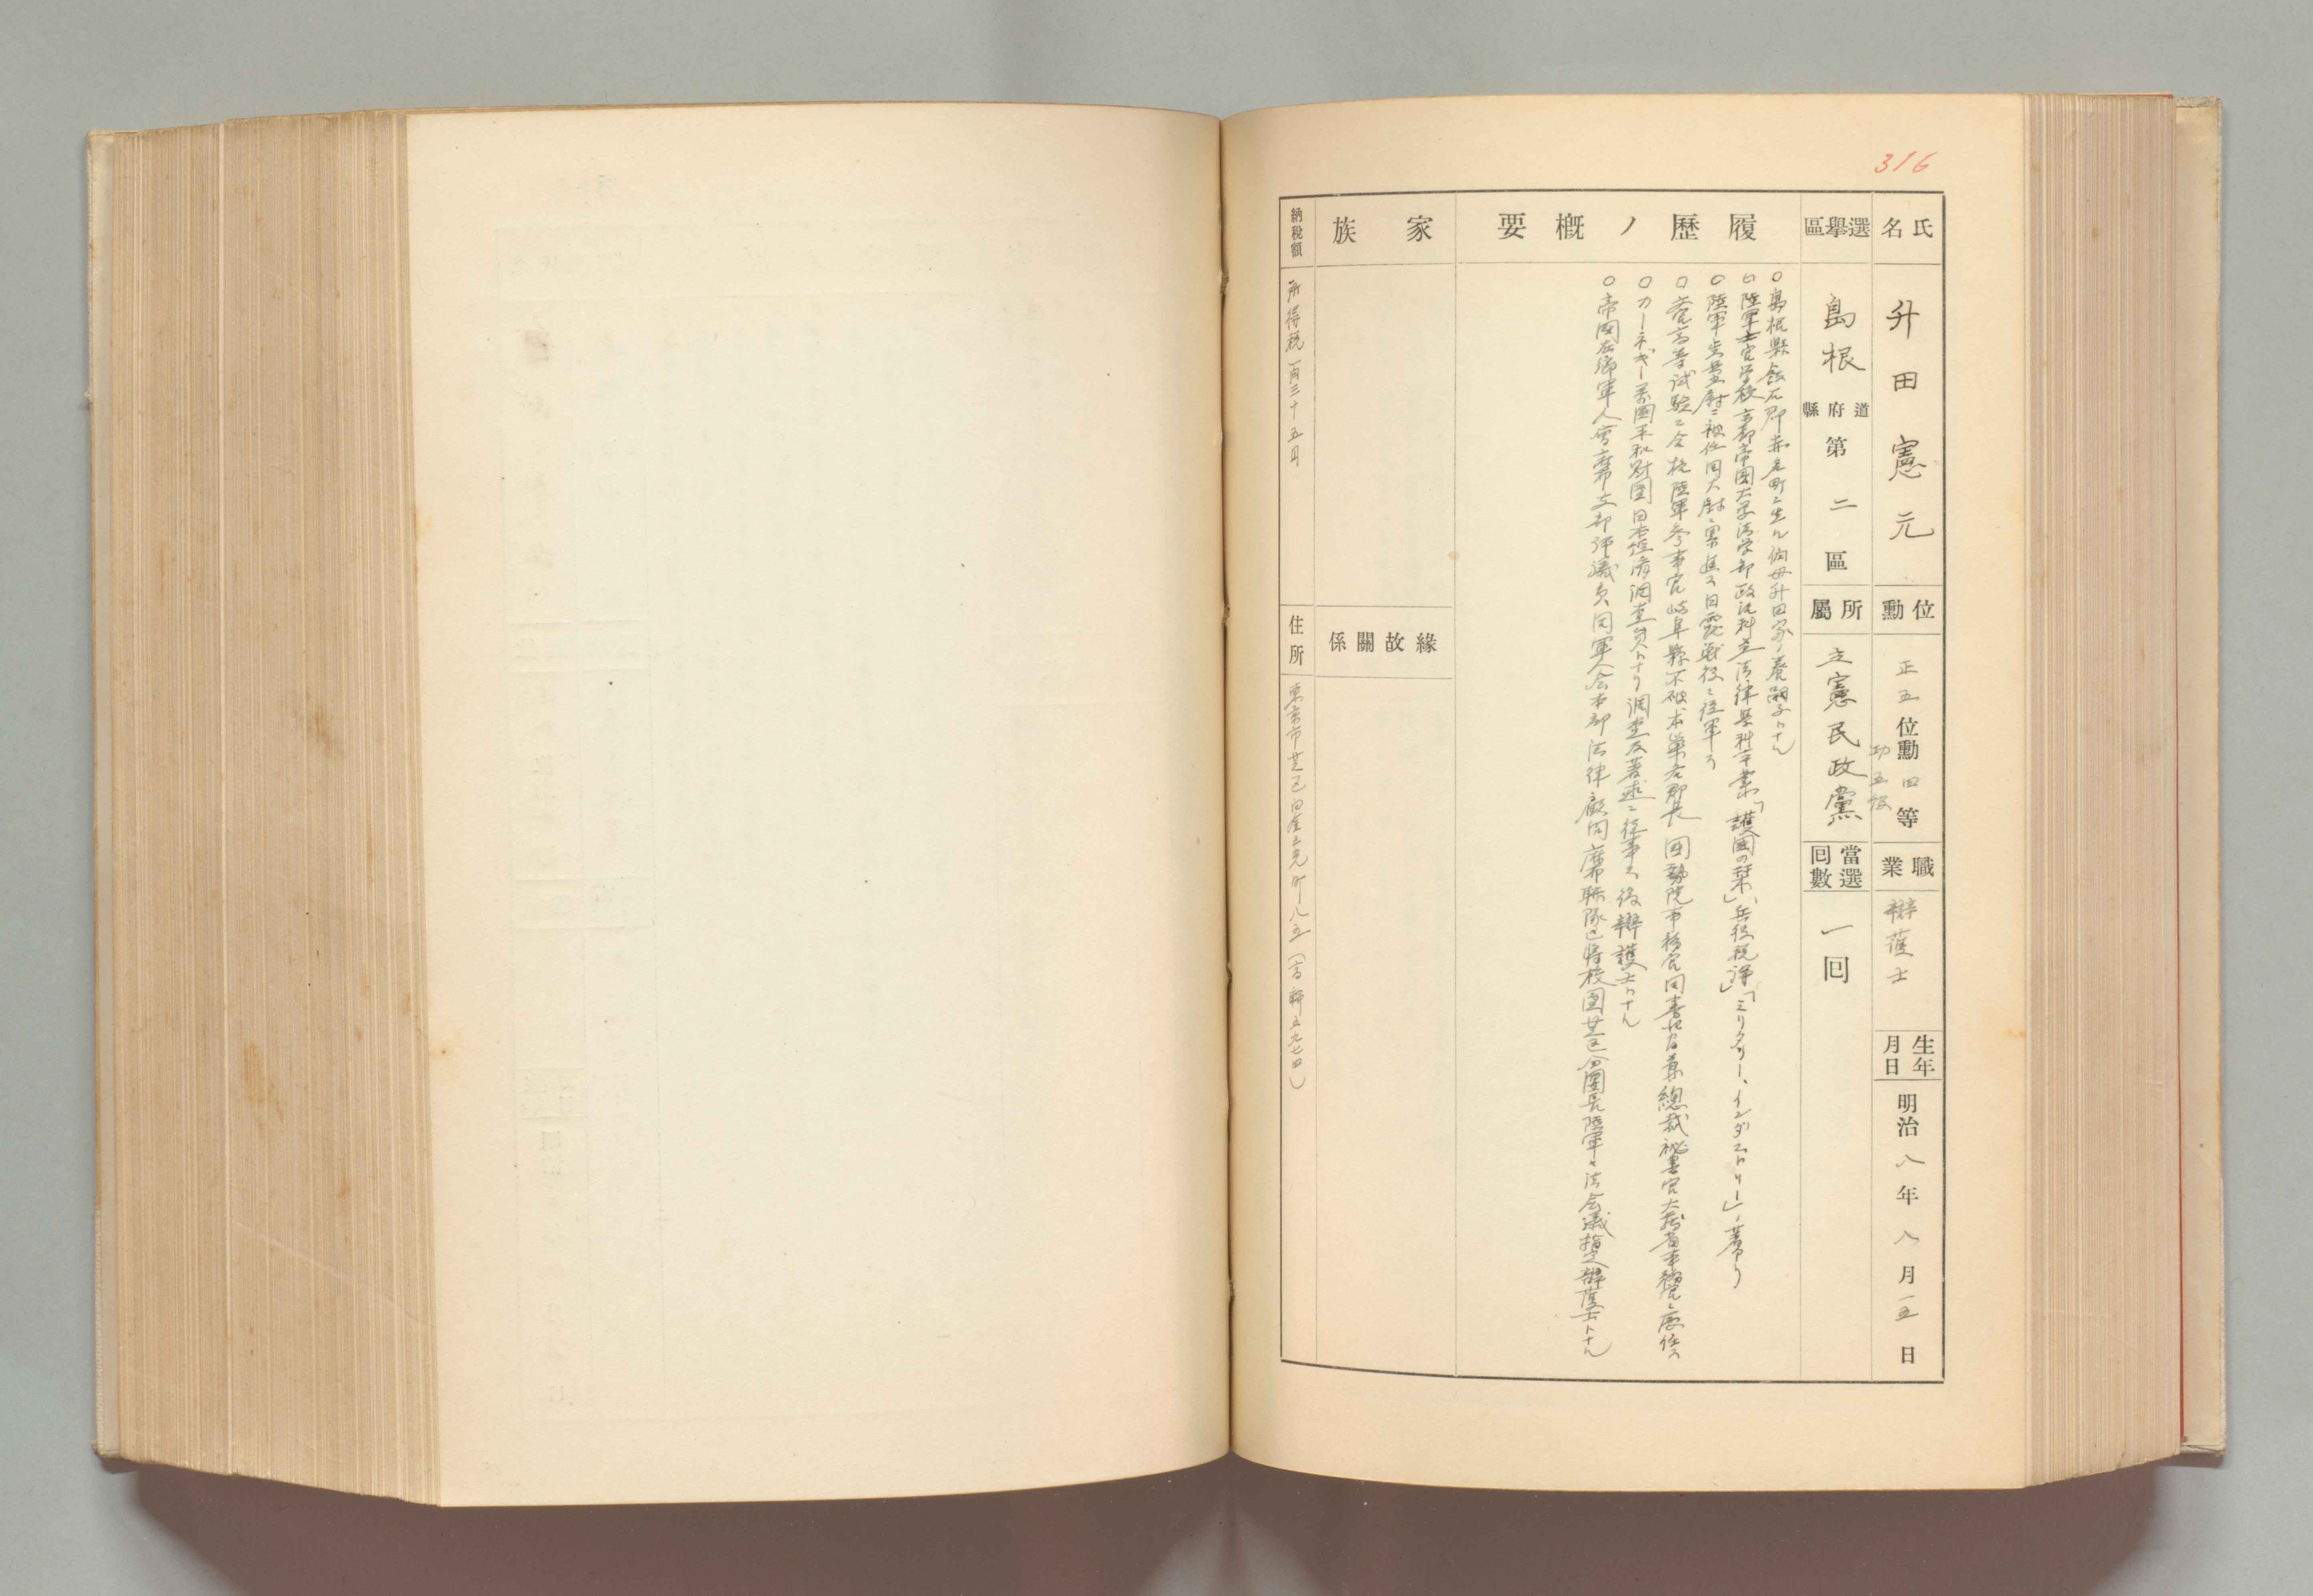 316
氏名
升田憲元
位勳
正五位勳四等
功五級
職業
辯護士
生年月日
明治八年八月一五日
選擧區
島根
道府縣
第二區
所屬
立憲民政黨
當選回數
一回
履歷ノ概要
○島根縣飯石郡赤名町ニ生ル伯母升田家ノ養嗣子トナル
○陸軍士官學校京都帝國大学法学部政治科並法律學科卒業「護國の栞」、兵役税論」「ミリタリー、インダストリー」ノ著アリ
○陸軍歩兵少尉ニ被任同大尉ニ累進ス日露戰役ニ從軍ス
○文官高等試驗ニ合格陸軍參事官岐阜縣不破本巣各郡長國勢院事務官同書記官兼總裁祕書官大藏省事務官ニ歷任ス
○カーネギー萬國平和財團日本經濟調査員トナリ調査及著述ニ從事ス後辯護士トナル
○帝國在鄕軍人會麻布支部評議員同軍人会本部法律顧問麻布聯隊区將校團芝区分團長陸軍々法会議指定辯護士トナル
家族
緣故關係
納税額
所得税一百三十五円
住所
東京市芝区白金三光町八五(高輪五九七四)